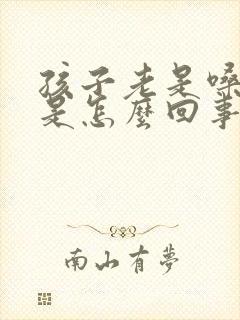 孩子老是嗓
是怎麼回事
南山有夢